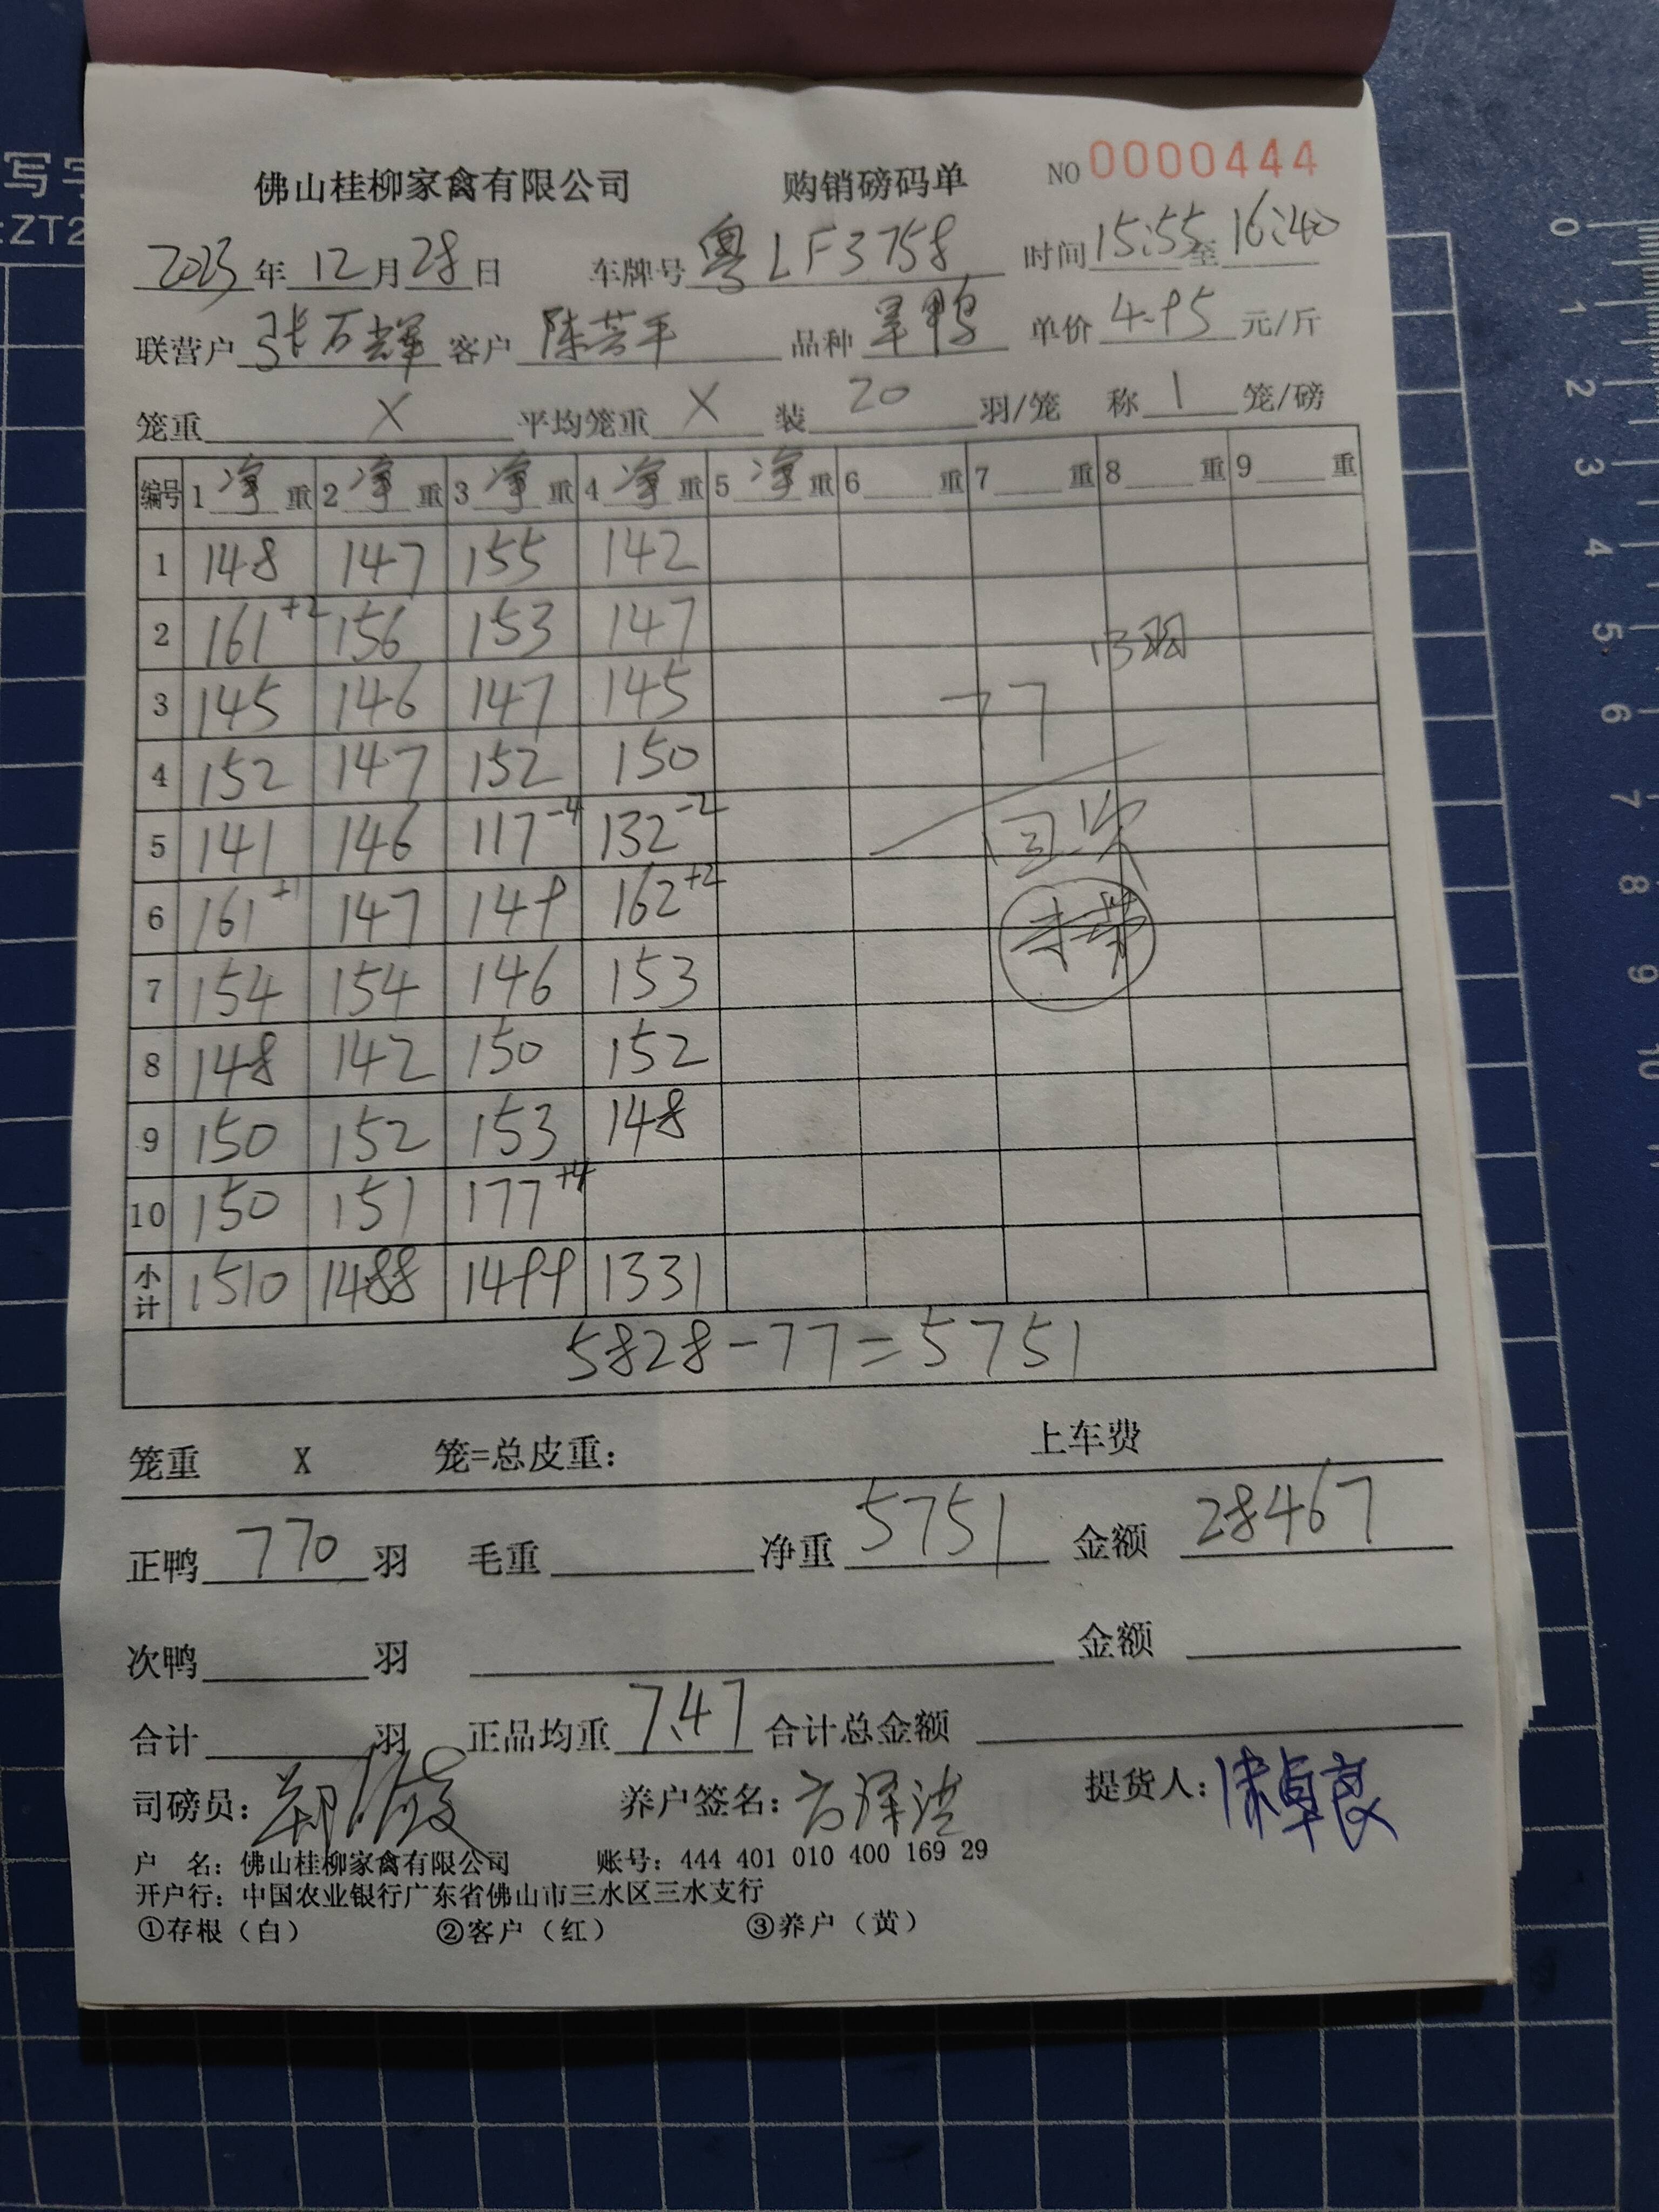 写字
:ZT2
佛山桂柳家禽有限公司 购销磅码单 NO 0000444
2023年12月28日 车牌号 粤LF3758 时间15:55至16:40
联营户 张石辉 客户 陈芸平 品种 旱鸭 单价 4.95 元/斤
笼重 X 平均笼重 X 装 20 羽/笼 称 1 笼/磅
编号 1净重 2净重 3净重 4净重 5净重 6 重 7 重 8 重 9 重
1 148 147 155 142
2 161+2 156 153 147 13羽
3 145 146 147 145 77
4 152 147 152 150
5 141 146 117-4 132-2 回次
6 161+1 147 149 162+2
7 154 154 146 153
8 148 142 150 152
9 150 152 153 148
10 150 151 177+4
小计 1510 1488 1499 1331
5828-77=5751
笼重 X 笼=总皮重: 上车费
正鸭 770 羽 毛重 净重 5751 金额 28467
次鸭 羽 金额
合计 羽 正品均重 7.47 合计总金额
司磅员: 养户签名: 提货人:
户 名: 佛山桂柳家禽有限公司 账号: 444 401 010 400 169 29
开户行: 中国农业银行广东省佛山市三水区三水支行
①存根（白） ②客户（红） ③养户（黄）
0
1
2
3
4
5
6
7
8
9
10